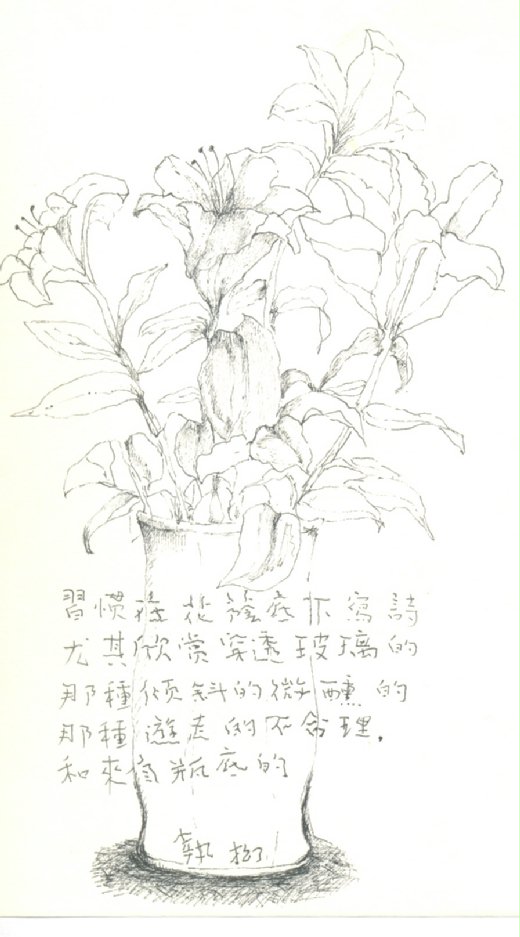 習慣在花蔭底下寫詩
尤其欣賞穿透玻璃的
那種傾斜的微醺的
那種遊走的不合理,
和來自瓶底的
執拗